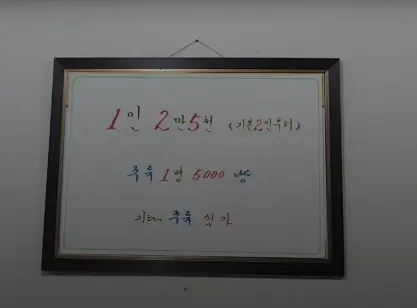 1인 2만5천 (기본2인부터)
주류 1병 5000냥
기타 주류 싯가